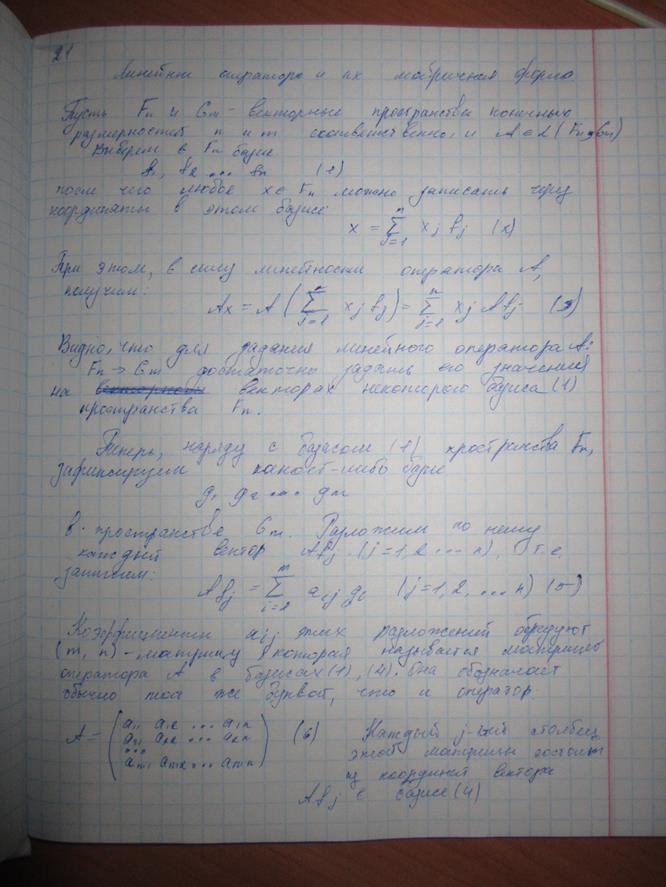 21
Линейные операторы и их матричная форма
Пусть Fn и Gm - векторные пространства конечных
размерностей n и m соответственно, и A ∈ L (Fn, Gm)
Выберем в Fn базис
f1, f2 ... fn (1)
после чего любое x ∈ Fn можно записать через
координаты в этом базисе
x = ∑ⁿⱼ₌₁ xj fj (2)
При этом, в силу линейности оператора A,
получим:
Ax = A (∑ⁿⱼ₌₁ xj fj) = ∑ⁿⱼ₌₁ xj Afj (3)
Видно, что для задания линейного оператора A:
Fn → Gm достаточно задать его значения
на векторах некоторого базиса (1)
пространства Fn.
Теперь, наряду с базисом (1) пространства Fn,
зафиксируем какой-либо базис
g1 g2 ... gm
в пространстве Gm. Разложим по нему
каждый вектор Afj (j=1,2 ... n), т.е.
запишем:
Afj = ∑ᵐᵢ₌₁ aij gi (j=1,2, ... n) (5)
Коэффициенты aij этих разложений образуют
(m, n) - матрицу, которая называется матрицей
оператора A в базисах (1), (4). Она обозначает
обычно той же буквой, что и оператор:
A = (a11 a12 ... a1n (6) Каждый j-ый столбец
a21 a22 ... a2n этой матрицы состоит
... из координат вектора
am1 am2 ... amn) Afj в базисе (4)